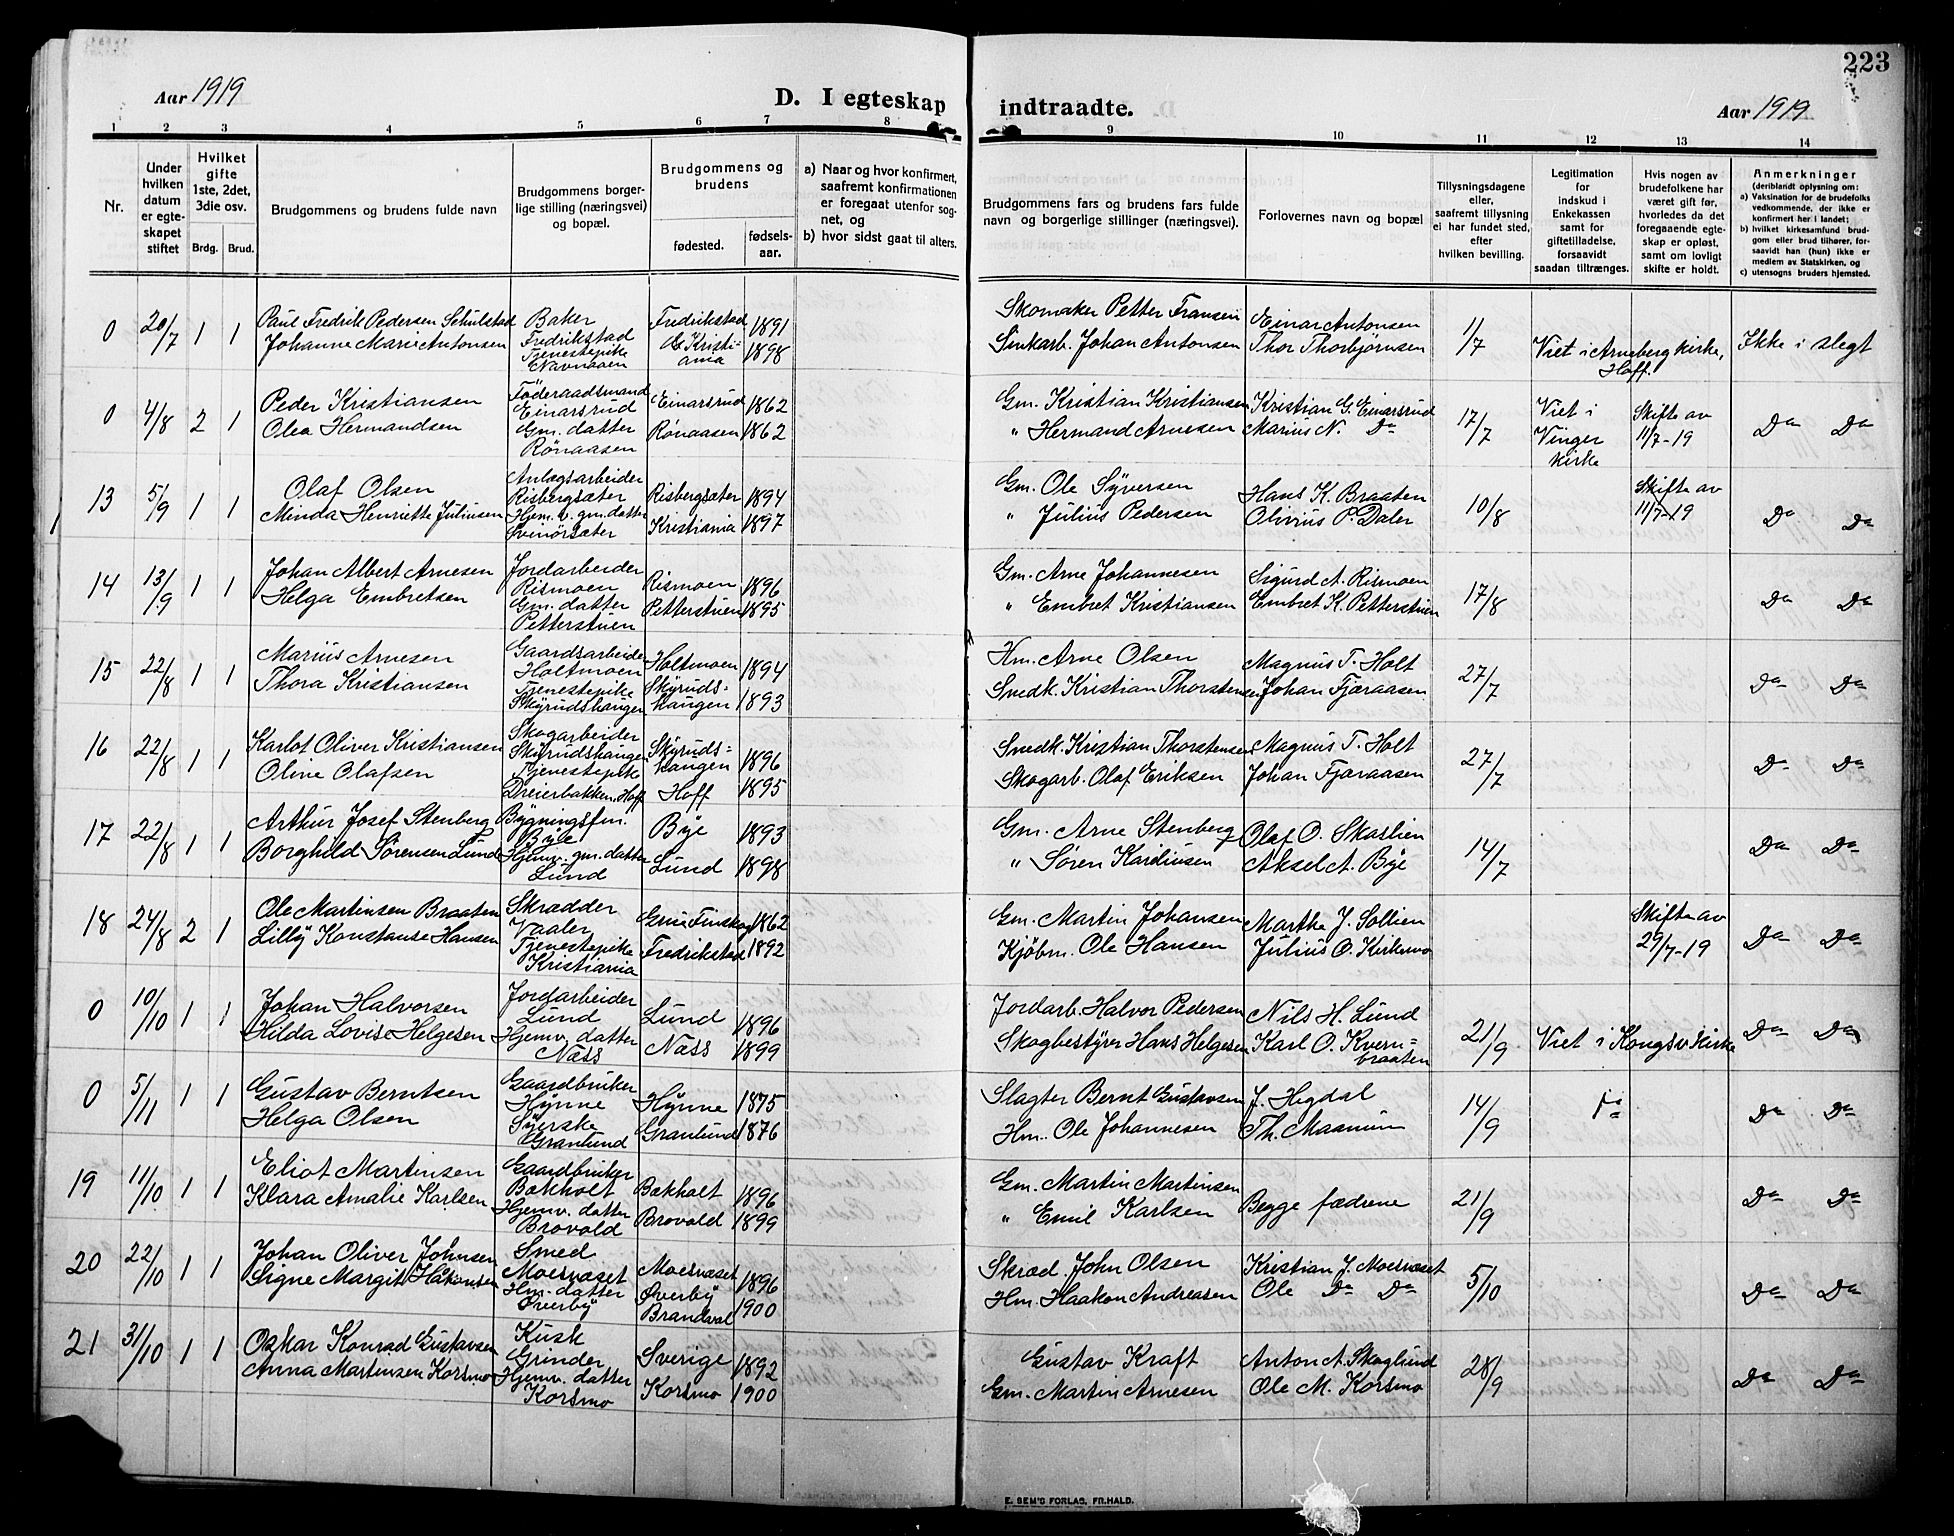 223
Aar 1919
D. I egteskap indtraadte.
Aar 1919
1 2 3 4 5 6 7 8 9 10 11 12 13 14
Nr.
Under hvilken datum er egteskapet stiftet
Hvilket gifte 1ste, 2det, 3die osv.
Brdg. Brud.
Brudgommens og brudens fulde navn
Brudgommens borgerlige stilling (næringsvei) og bopæl.
Brudgommens og brudens
fødested. fødselsaar.
a) Naar og hvor konfirmert, saafremt konfirmationen er foregaat utenfor sognet, og
b) hvor sidst gaat til alters.
Brudgommens fars og brudens fars fulde navn og borgerlige stillinger (næringsvei).
Forlovernes navn og bopæl
Tillysningsdagene eller, saafremt tillysning ei har fundet sted, efter hvilken bevilling.
Legitimation for indskud i Enkekassen samt for giftetilladelse, forsaavidt saadan tiltrænges.
Hvis nogen av brudefolkene har været gift før, hvorledes da det foregaaende egteskap er opløst, samt om lovligt skifte er holdt.
Anmerkninger
(deriblandt oplysning om:
a) Vaksination for de brudefolks vedkommende, der ikke er konfirmert her i landet;
b) hvilket kirkesamfund brudgom eller brud tilhører, forsaavidt han (hun) ikke er medlem av Statskirken, og
c) utensogns bruders hjemsted.
0 20/7 1 1 Paul Fredrik Pedersen Schulstad Baker Fredrikstad Fredrikstad 1891 Skomaker Petter Fransen Einar Antonsen 1/7 Viet i Arneberg kirke, Hoff. Ikke i slegt
Johanne Marie Antonsen Tjenestepike Navnaaen G. Kristiania 1898 Sinkarb. Johan Antonsen Thor Thorbjørnsen
0 4/8 2 1 Peder Kristiansen Føderaadsmand Einarsrud Einarsrud 1862 Gm. Kristian Kristiansen Kristian G. Einarsrud 17/7 Viet i Vinger kirke Skifte av 11/7-19 Do Do
Olea Hermandsen Gm. datter Rønaasen Rønaasen 1862 " Hermand Arnesen Marius N. Do
13 5/9 1 1 Olaf Olsen Anlægsarbeider Risbergsæter Risbergsæter 1894 Gm. Ole Syversen Hans K. Braaten 10/8 Skifte av 11/7-19 Do Do
Minda Henriette Juliusen Hjem.v. gm. datter Svenørsæter Kristiania 1897 " Julius Pedersen Olivius P. Daler
14 13/9 1 1 Johan Albert Arnesen Jordarbeider Rismoen Rismoen 1896 Gm. Arne Johannesen Sigurd A. Rismoen 17/8 Do Do
Helga Embretsen Gm. datter Petterstuen Petterstuen 1895 " Embret Kristiansen Embret K. Petterstuen
15 22/8 1 1 Marius Arnesen Gaardsarbeider Holtmoen Holtmoen 1894 Hm. Arne Olsen Magnus T. Holt 27/7 Do Do
Thora Kristiansen Tjenestepike Skyrudshaugen Skyrudshaugen 1893 Snedk. Kristian Thorstensen Johan Fjæraasen
16 22/8 1 1 Karlot Oliver Kristiansen Skogarbeider Skyrudshaugen Skyrudshaugen 1896 Snedk. Kristian Thorstensen Magnus T. Holt 27/7 Do Do
Oline Olafsen Tjenestepike Dreierbakken, Hoff Hoff 1895 Skogarb. Olaf Eriksen Johan Fjæraasen
17 22/8 1 1 Arthur Josef Stenberg Bygningsfm. Bye Bye 1893 Gm. Arne Stenberg Olaf O. Skaslien 14/7 Do Do
Borghild Sørensen Lund Hjemv. gm. datter Lund Lund 1898 " Søren Karliusen Aksel A. Bye
18 24/8 2 1 Ole Martinsen Braaten Skrædder Vaaler Grue Finskog 1862 Gm. Martin Johansen Marthe J. Sollien Skifte av 29/7-19 Do Do
Lilly Konstanse Hansen Tjenestepike Kristiania Fredrikstad 1892 Kjøbm. Ole Hansen Julius O. Kirkemo
0 10/10 1 1 Johan Halvorsen Jordarbeider Lund Lund 1896 Jordarb. Halvor Pedersen Nils H. Lund 21/9 Viet i Kongsv. kirke Do Do
Hilda Lovise Helgesen Hjemv. datter Næss Næss 1899 Skogbestyrer Hans Helgesen Karl O. Kvernbraaten
0 5/11 1 1 Gustav Berntsen Gaardbruker Hynne Hynne 1875 Slagter Bernt Gustavsen J. Hegdal 14/9 Do Do Do
Helga Olsen Syerske Granlund Granlund 1876 Hm. Ole Johannesen Th. Masmun
19 11/10 1 1 Eliot Martinsen Gaardbruker Bakholt Bakholt 1896 Gm. Martin Martinsen Begge fædrene 21/9 Do Do
Klara Amalie Karlsen Hjemv. datter Brovold Brovold 1899 " Emil Karlsen
20 22/10 1 1 Johan Oliver Johnsen Smed Moesvæset Moesvæset 1896 Skræd. John Olsen Kristian J. Moesvæset 5/10 Do Do
Signe Margit Håkonsen Hm. datter Øverby Øverby Brandval 1900 Hm. Haakon Andreasen Ole Do Do
21 31/10 1 1 Oskar Konrad Gustavsen Kusk Grinder Sverige 1892 Gustav Kraft Anton A. Skoglund 28/9 Do Do
Anna Martinsen Korsmo Hjemv. datter Korsmo Korsmo 1900 Gm. Martin Arnesen Ole M. Korsmo
E. SEM'S FORLAG, FR.HALD.